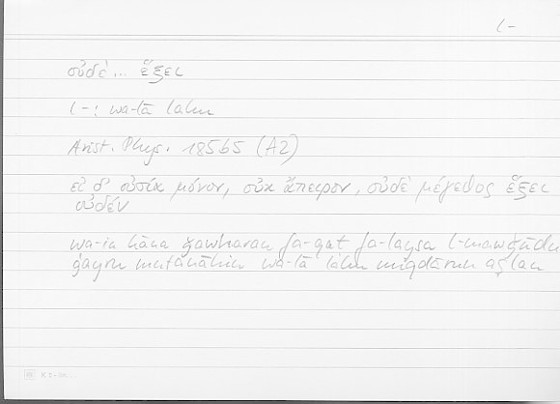 l-
οὐδέ... ἕξει
l-: wa-lā lahu
Arist. Phys. 185b5 (A2)
εἰ δ' οὐσία μόνον, οὐκ ἄπειρον, οὐδὲ μέγεθος ἕξει
οὐδέν
wa-in kāna ǧawharan fa-qaṭ fa-laysa l-mawǧūdu
ġayra mutanāhin wa-lā lahu miqdārun aṣlan